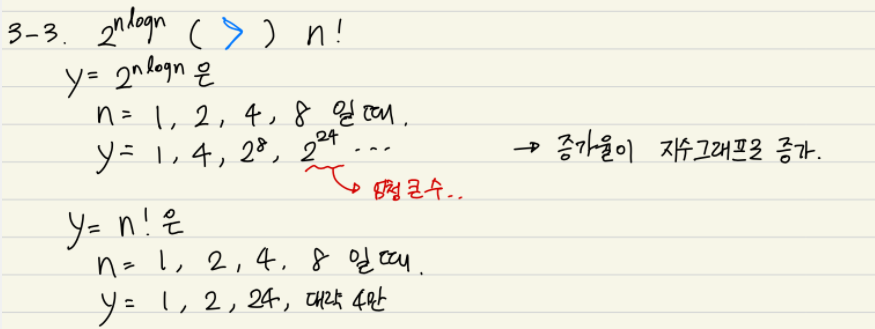 3-3. 2^{nlogn} ( > ) n!
y= 2^{nlogn} 은
n= 1, 2, 4, 8 일때.
y= 1, 4, 2^8, 2^{24} ... → 증가율이 지수그래프로 증가.
엄청 큰 수..
y= n! 은
n= 1, 2, 4. 8 일때.
y= 1, 2, 24, 대략 4만